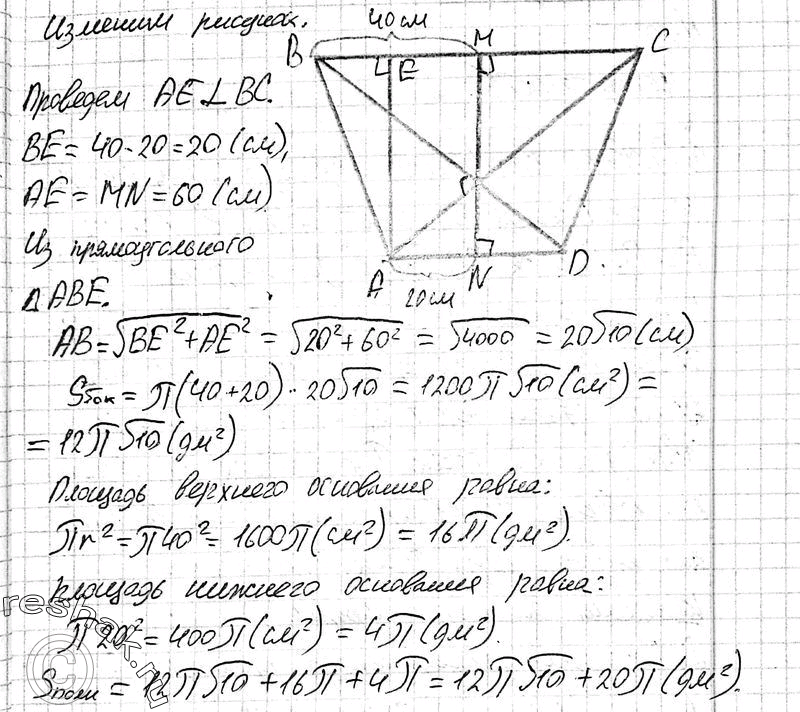 Изменим рисунок.
40 см
B E M C
Проведем AE ⊥ BC.
BE = 40-20 = 20 (см),
AE = MN = 60 (см)
Из прямоугольного
Δ ABE.
A N D.
20 см
AB = √BE² + AE² = √20² + 60² = √4000 = 20√10 (см)
Sбок = π(40+20) · 20√10 = 1200π√10 (см²) =
= 12π√10 (дм²)
Площадь верхнего основания равна:
πr² = π40² = 1600π (см²) = 16π (дм²).
площадь нижнего основания равна:
π20² = 400π (см²) = 4π (дм²).
Sполн = 12π√10 + 16π + 4π = 12π√10 + 20π (дм²).
reshak.ru
©